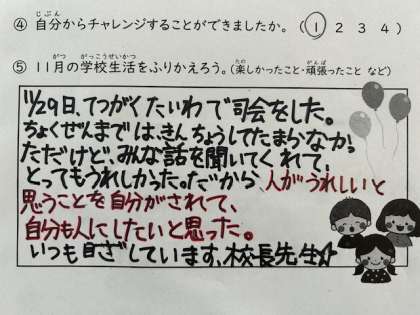 ④ 自分からチャレンジすることができましたか。（ 1 2 3 4 ）
⑤ 11月の学校生活をふりかえろう。（楽しかったこと・頑張ったこと など）
11/29日、てつがくたいわで司会をした。
ちょくぜんまでは、きんちょうしてたまらなかっ
ただけど、みんな話を聞いてくれて、
とってもうれしかった。だから、人がうれしいと
思うことを自分がされて、
自分も人にしたいと思った。
いつも目ざしています、校長先生☆